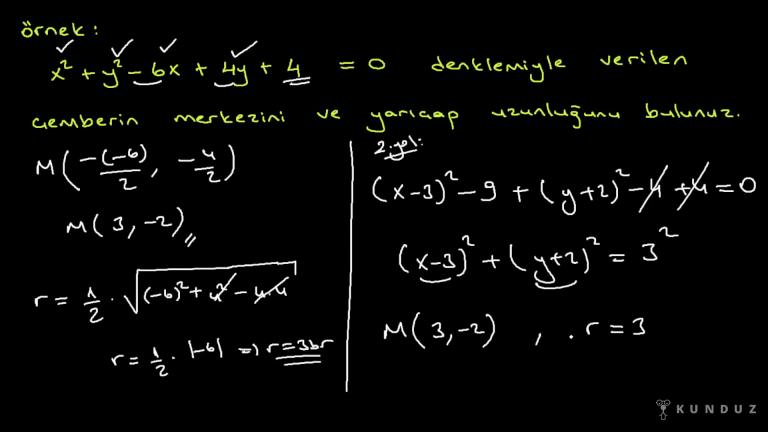 örnek:
x² + y² - 6x + 4y + 4 = 0 denklemiyle verilen
çemberin merkezini ve yarıçap uzunluğunu bulunuz.
M(-(-6)/2, -4/2)
M(3, -2)
r = 1/2 · √((-6)² + 4² - 4·4)
r = 1/2 · |-6| => r = 3br
2. yol:
(x-3)² - 9 + (y+2)² - 4 + 4 = 0
(x-3)² + (y+2)² = 3²
M(3, -2) , . r = 3
KUNDUZ